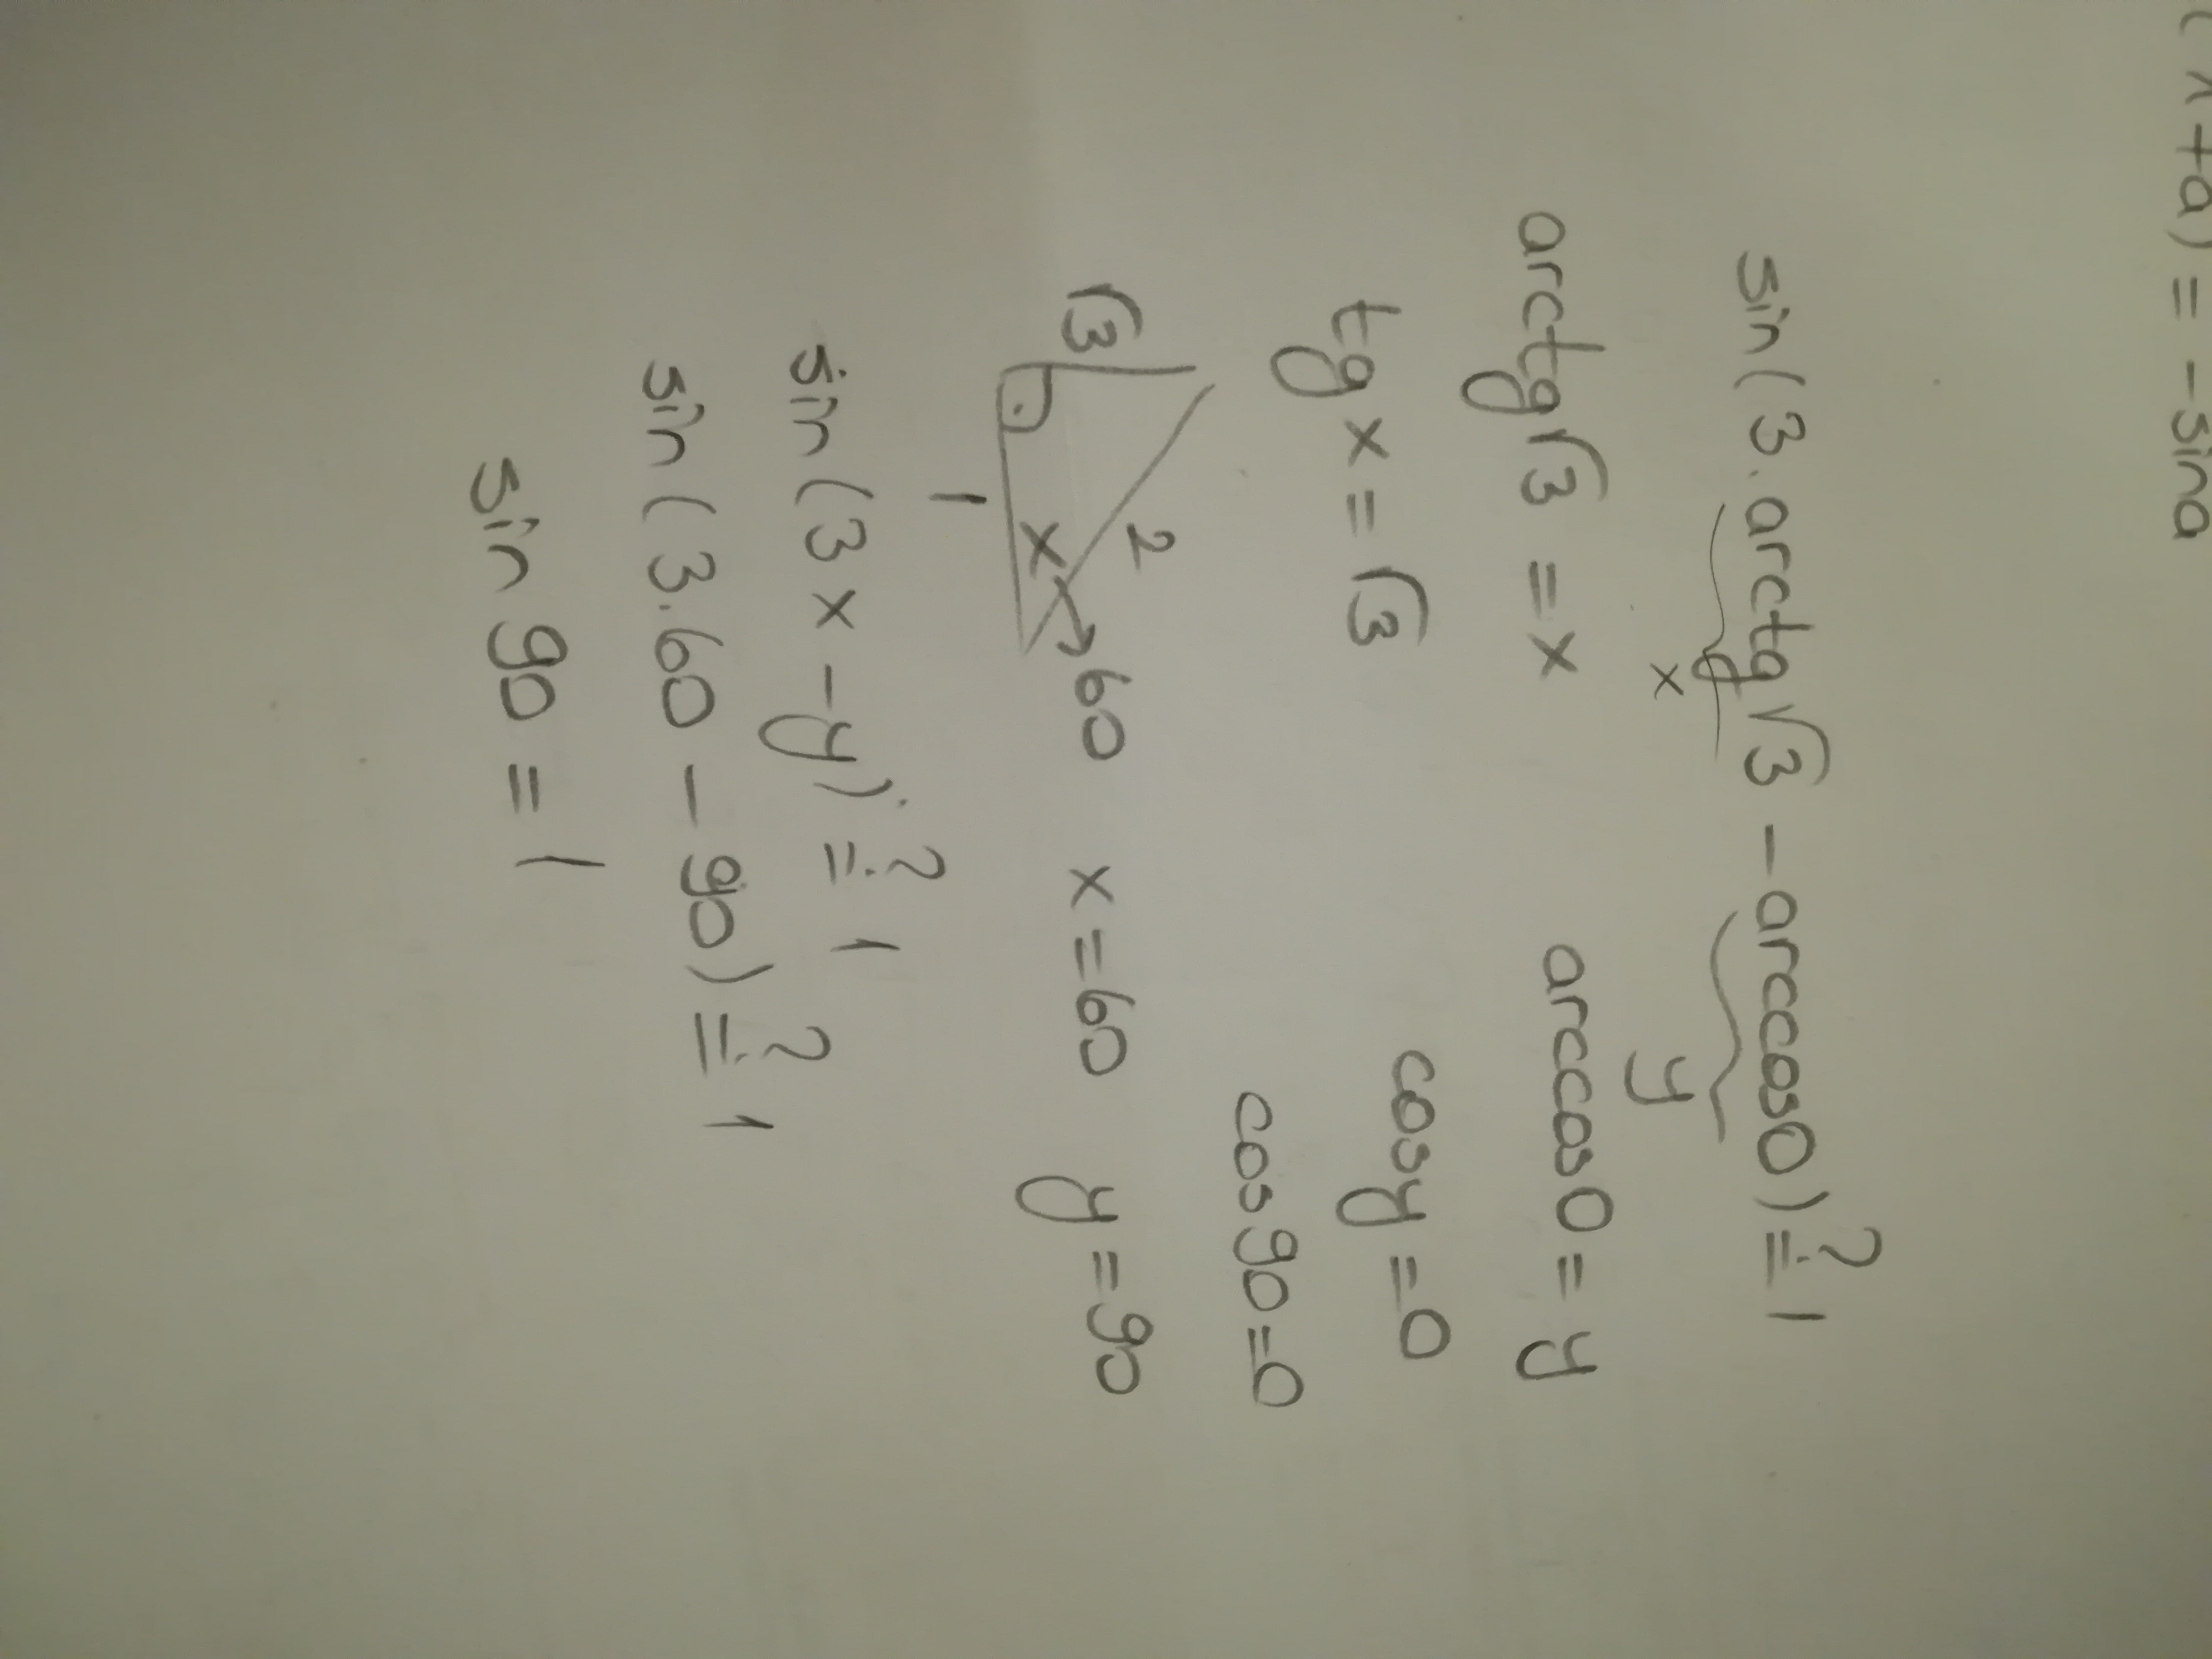 (π+a) = -sina
sin(3.arctg√3 - arccos0) ≟ 1
x y
arctg√3 = x arccos0 = y
tg x = √3 cosy = 0
cos90=0
√3 2 x 60 x = 60 y = 90
1
sin(3x - y) ≟ 1
sin(3.60 - 90) ≟ 1
sin 90 = 1